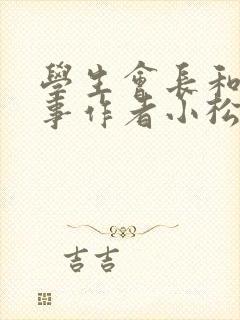 學生會長和
事作者小松
吉吉